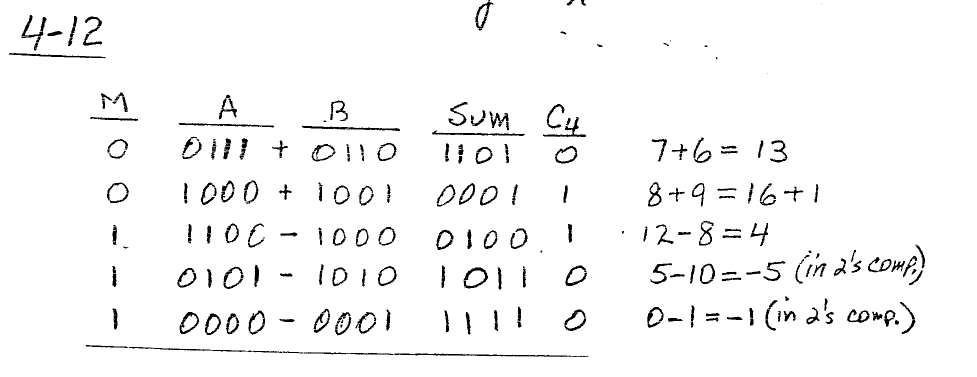 4-12
M A B Sum C4
0 0111 + 0110 1101 0 7+6 = 13
0 1000 + 1001 0001 1 8+9 = 16+1
1 1100 - 1000 0100 1 12-8=4
1 0101 - 1010 1011 0 5-10=-5 (in 2's comp.)
1 0000 - 0001 1111 0 0-1=-1 (in 2's comp.)